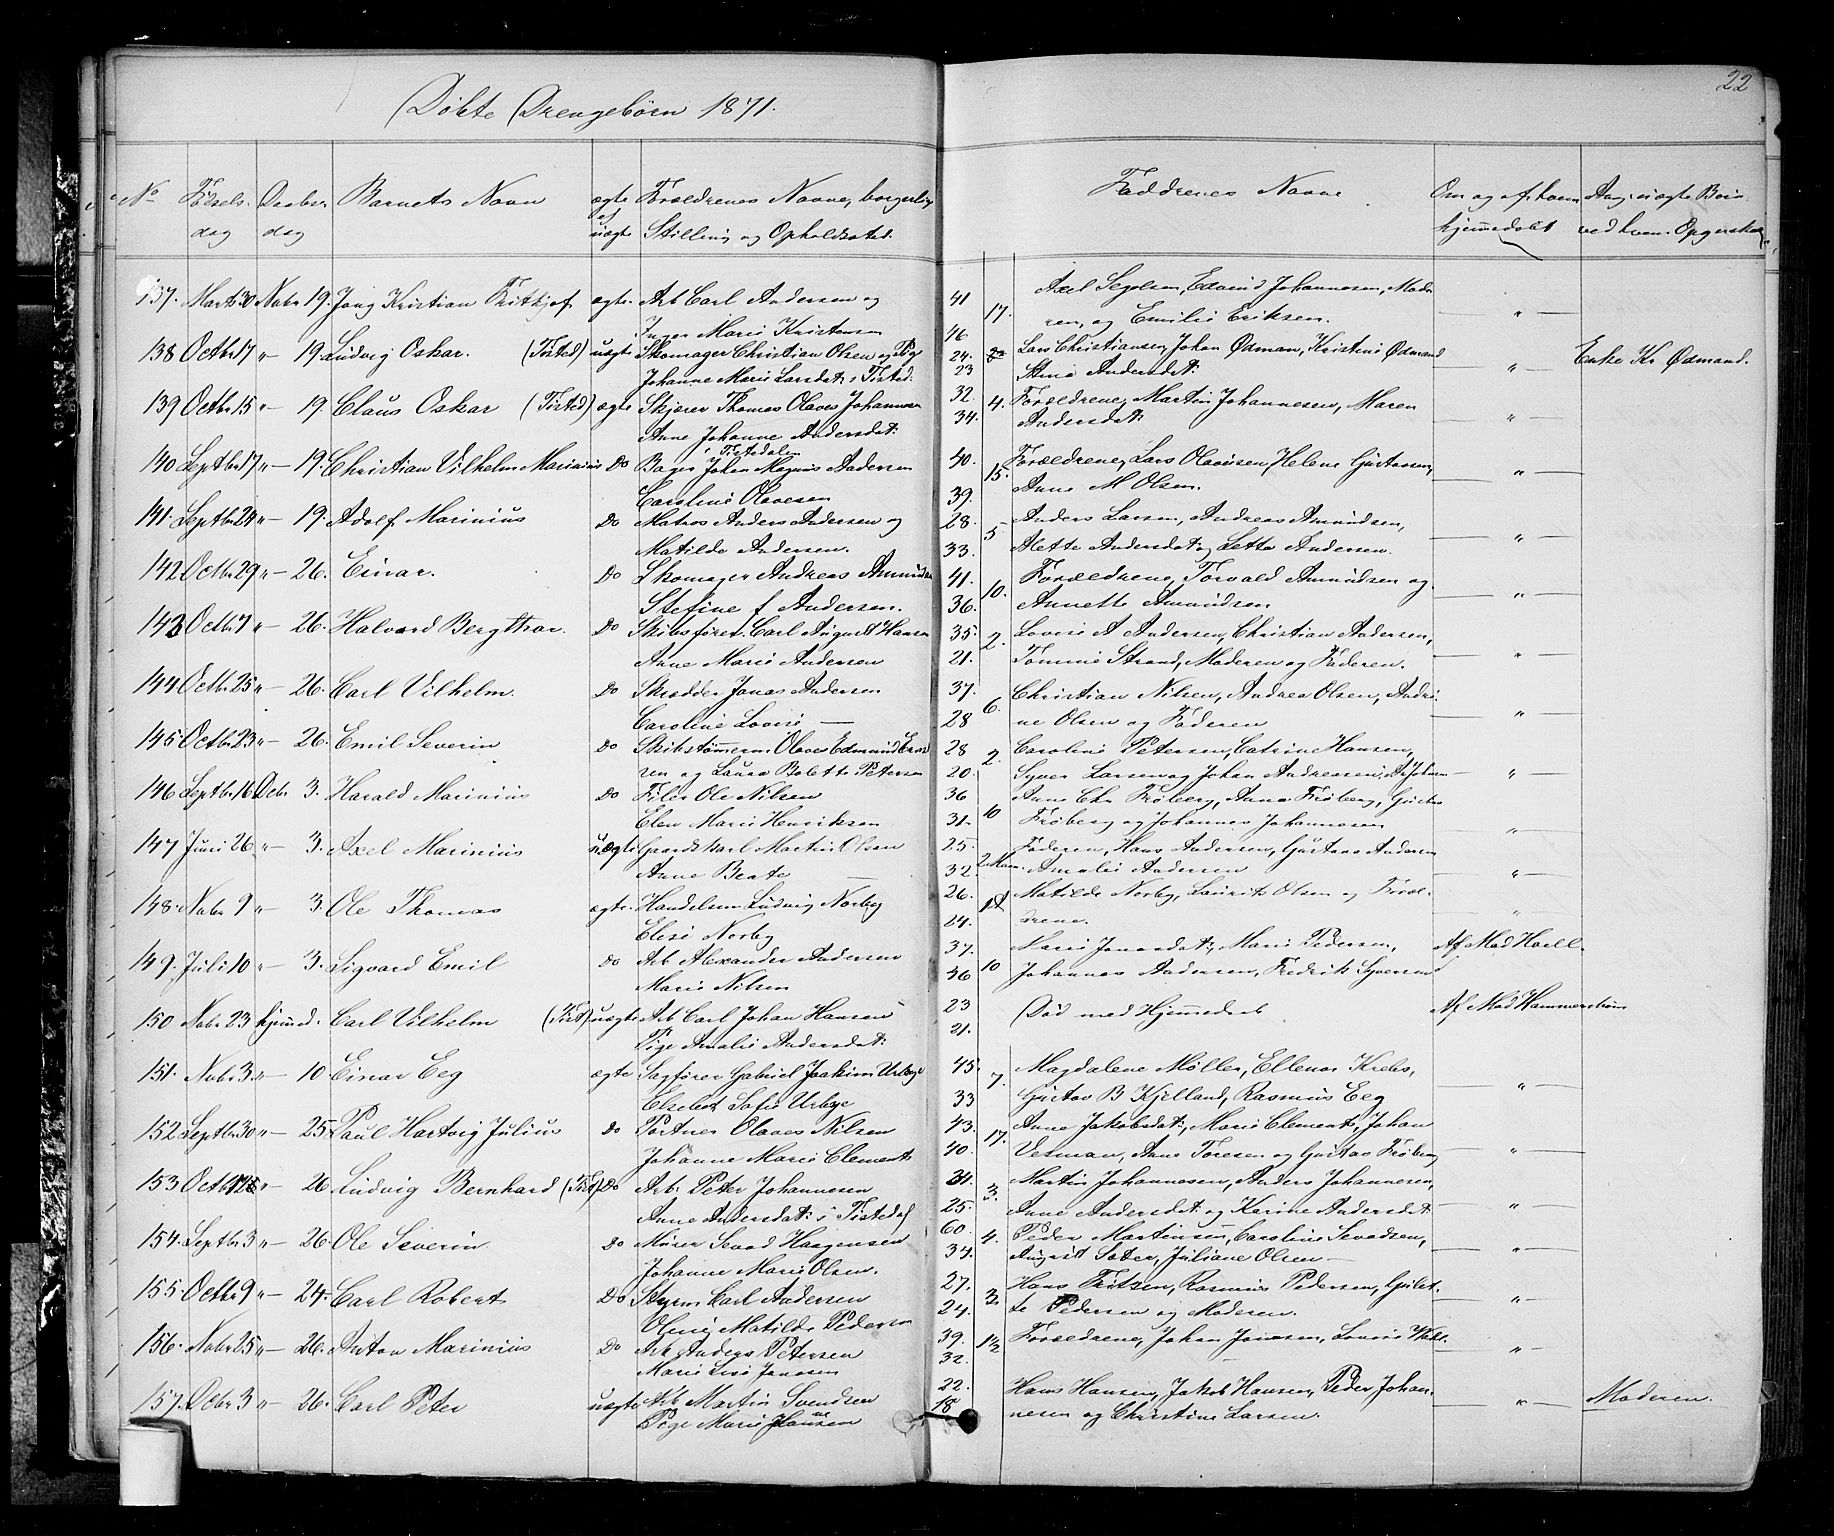 22
Døbte Drengebørn 1871.
No Fødsels- dag Daabs- dag Barnets Navn ægte el uægte Forældrenes Navne, borgerlig Stilling og Opholdssted. Faddrenes Navne Om og af hvem hjemmedøbt Ang. uægte Børn ved hvem Opgivelse
137. Marts 30 Novbr 19. Kristian Frithjof. ægte. Arb Carl Andersen og 41 17. Axel Segelsen, Edvard Johannesen, Mode-
Inger Marie Kristensen 46 ren, og Emilie Eriksen. "
138 Octbr 17 " 19. Ludvig Oskar. (Tisted) uægte Skomager Christian Olsen og Pige 24. Lars Christiansen, Johan Ødman, Kristine Ødmand Enke Kr Ødmand.
Johanne Marie Larsdat i Tisted. 23 Andersdat. "
139 Octbr 15 " 19. Claus Oskar (Tisted) ægte Skjærer Thomas Olaves Johannesen 32. 4. Forældrene, Martin Johannesen, Maren
Anne Johanne Andersdat. 34. Andersdat. "
i Tistedalen
140 Septbr 17 " 19. Christian Vilhelm Marinius Do Bager Johan Magnus Andersen 40. 15. Forældrene, Lars Olausen, Helene Gustavsen,
Caroline Olavesen 39. Anne M Olsen. "
141. Septbr 24 " 19. Adolf Marinius Do Matros Anders Andersen og 28. 5 Anders Larsen, Andreas Amundsen,
Matilde Andersen. 33. Mette Andersdat og Lette Andersen. "
142 Octbr 29 " 26. Einar. Do Skomager Andreas Amundsen 41. 10. Forældrene, Torvald Amundsen og
Stefine f Andersen. 36. Annette Amundsen "
143 Octbr 7 " 26. Halvard Bergthor. Do Skibsfører Carl August Hansen 35. 2. Lovise A Andersen, Christian Andersen,
Anne Marie Andersen 21. Tomine Strand, Moderen og Faderen. "
144 Octbr 25 " 26. Carl Vilhelm. Do Skrædder Jonas Andersen 37. 6. Christian Nilsen, Andrea Olsen, Andri-
Caroline Lovise — 28 ne Olsen og Faderen "
145 Octbr 23 " 26. Emil Severin Do Skibstømmerm Olaves Edmund 28 2. Caroline Petersen, Catrine Hansen,
ren og Laura Bolette Petersen 20. Syver Larsen og Johan Andreasen, "
146 Septbr 16 Decbr 3. Harald Marinius Do Filer Ole Nilsen 36 10 Anne Chr Frøberg, Anna Frøberg, Gustav
Elen Marie Henriksen 31. Frøberg og Johannes Johannesen "
147 Juni 26 " 3. Axel Marinius uægte Gaardskarl Martin Olsen 25. Faderen, Hans Andersen, Gustava Andersen
Anne Beate — 32. Amalie Andersen "
148. Novbr 9 " 3. Ole Thomas ægte. Handelsm Ludvig Norby 26. Matilde Norby, Laurits Olsen og Foræl-
Elise Norby 24. drene. "
149. Juli 10 " 3. Sigvard Emil Do Arb Alexander Andersen 37. 10 Marie Jonasdat, Marie Pedersen, Af Mad Hoell
Marie Nilsen 36 Johannes Andersen, Fredrik Syversen
150 Novbr 23 hjemmd. Carl Vilhelm (Tist) uægte Arb Carl Johan Hansen 23 Død med Hjemmedaab Af Mad Hammerstrøm
Pige Amalie Andersdat. 21.
151. Novbr 3. " 10 Einar Eeg ægte Sagfører Gabriel Joakim Urbye 45. 7. Magdalene Møller, Ellenor Krebs,
Elsebet Sofie Urbye 33 Gustav B Kjelland, Rasmus Eeg "
152. Septbr 30 " 25 Paul Hartvig Julius Do Portner Olaves Nilsen 43. 17. Anne Jakobsdat, Marie Clements, Johan
Johanne Marie Clements 40. Vetman, Anne Toresen og Gustav Frøberg "
153 Octbr " 26 Ludvig Bernhard (Tist) Do Arb. Peter Johannesen 31. 3. Martin Johannesen, Anders Johannesen,
Anne Andersdat i Tistedal 25. Anne Andersdat og Karine Andersdat "
154. Septbr 3 " 26. Ole Severin Do Murer Sevad Haagensen 60 4. Peder Martinsen, Caroline Sevadsen,
Johanne Marie Olsen. 34. Sater, Juliane Olsen "
155 Octbr 9 " 24. Carl Robert Do Styrm Carl Andersen 27. 3. Hans Fritzen, Rasmus Pedersen, Gulet-
Oline Matilde Pedersen 24. te Pedersen og Moderen. "
156. Novbr 25 " 26. Anton Marinius Do Arb Anders Petersen 39. 1½ Forældrene, Johan Jonasen, Lovise
Marie Lise Jonasen 32. "
157. Octbr 3 " 26. Carl Peter uægte Arb Martin Svendsen 22. Hans Hansen, Jakob Hansen, Peder Johan-
Pige Marie Hansen 18 nesen og Christine Larsen. " Moderen.